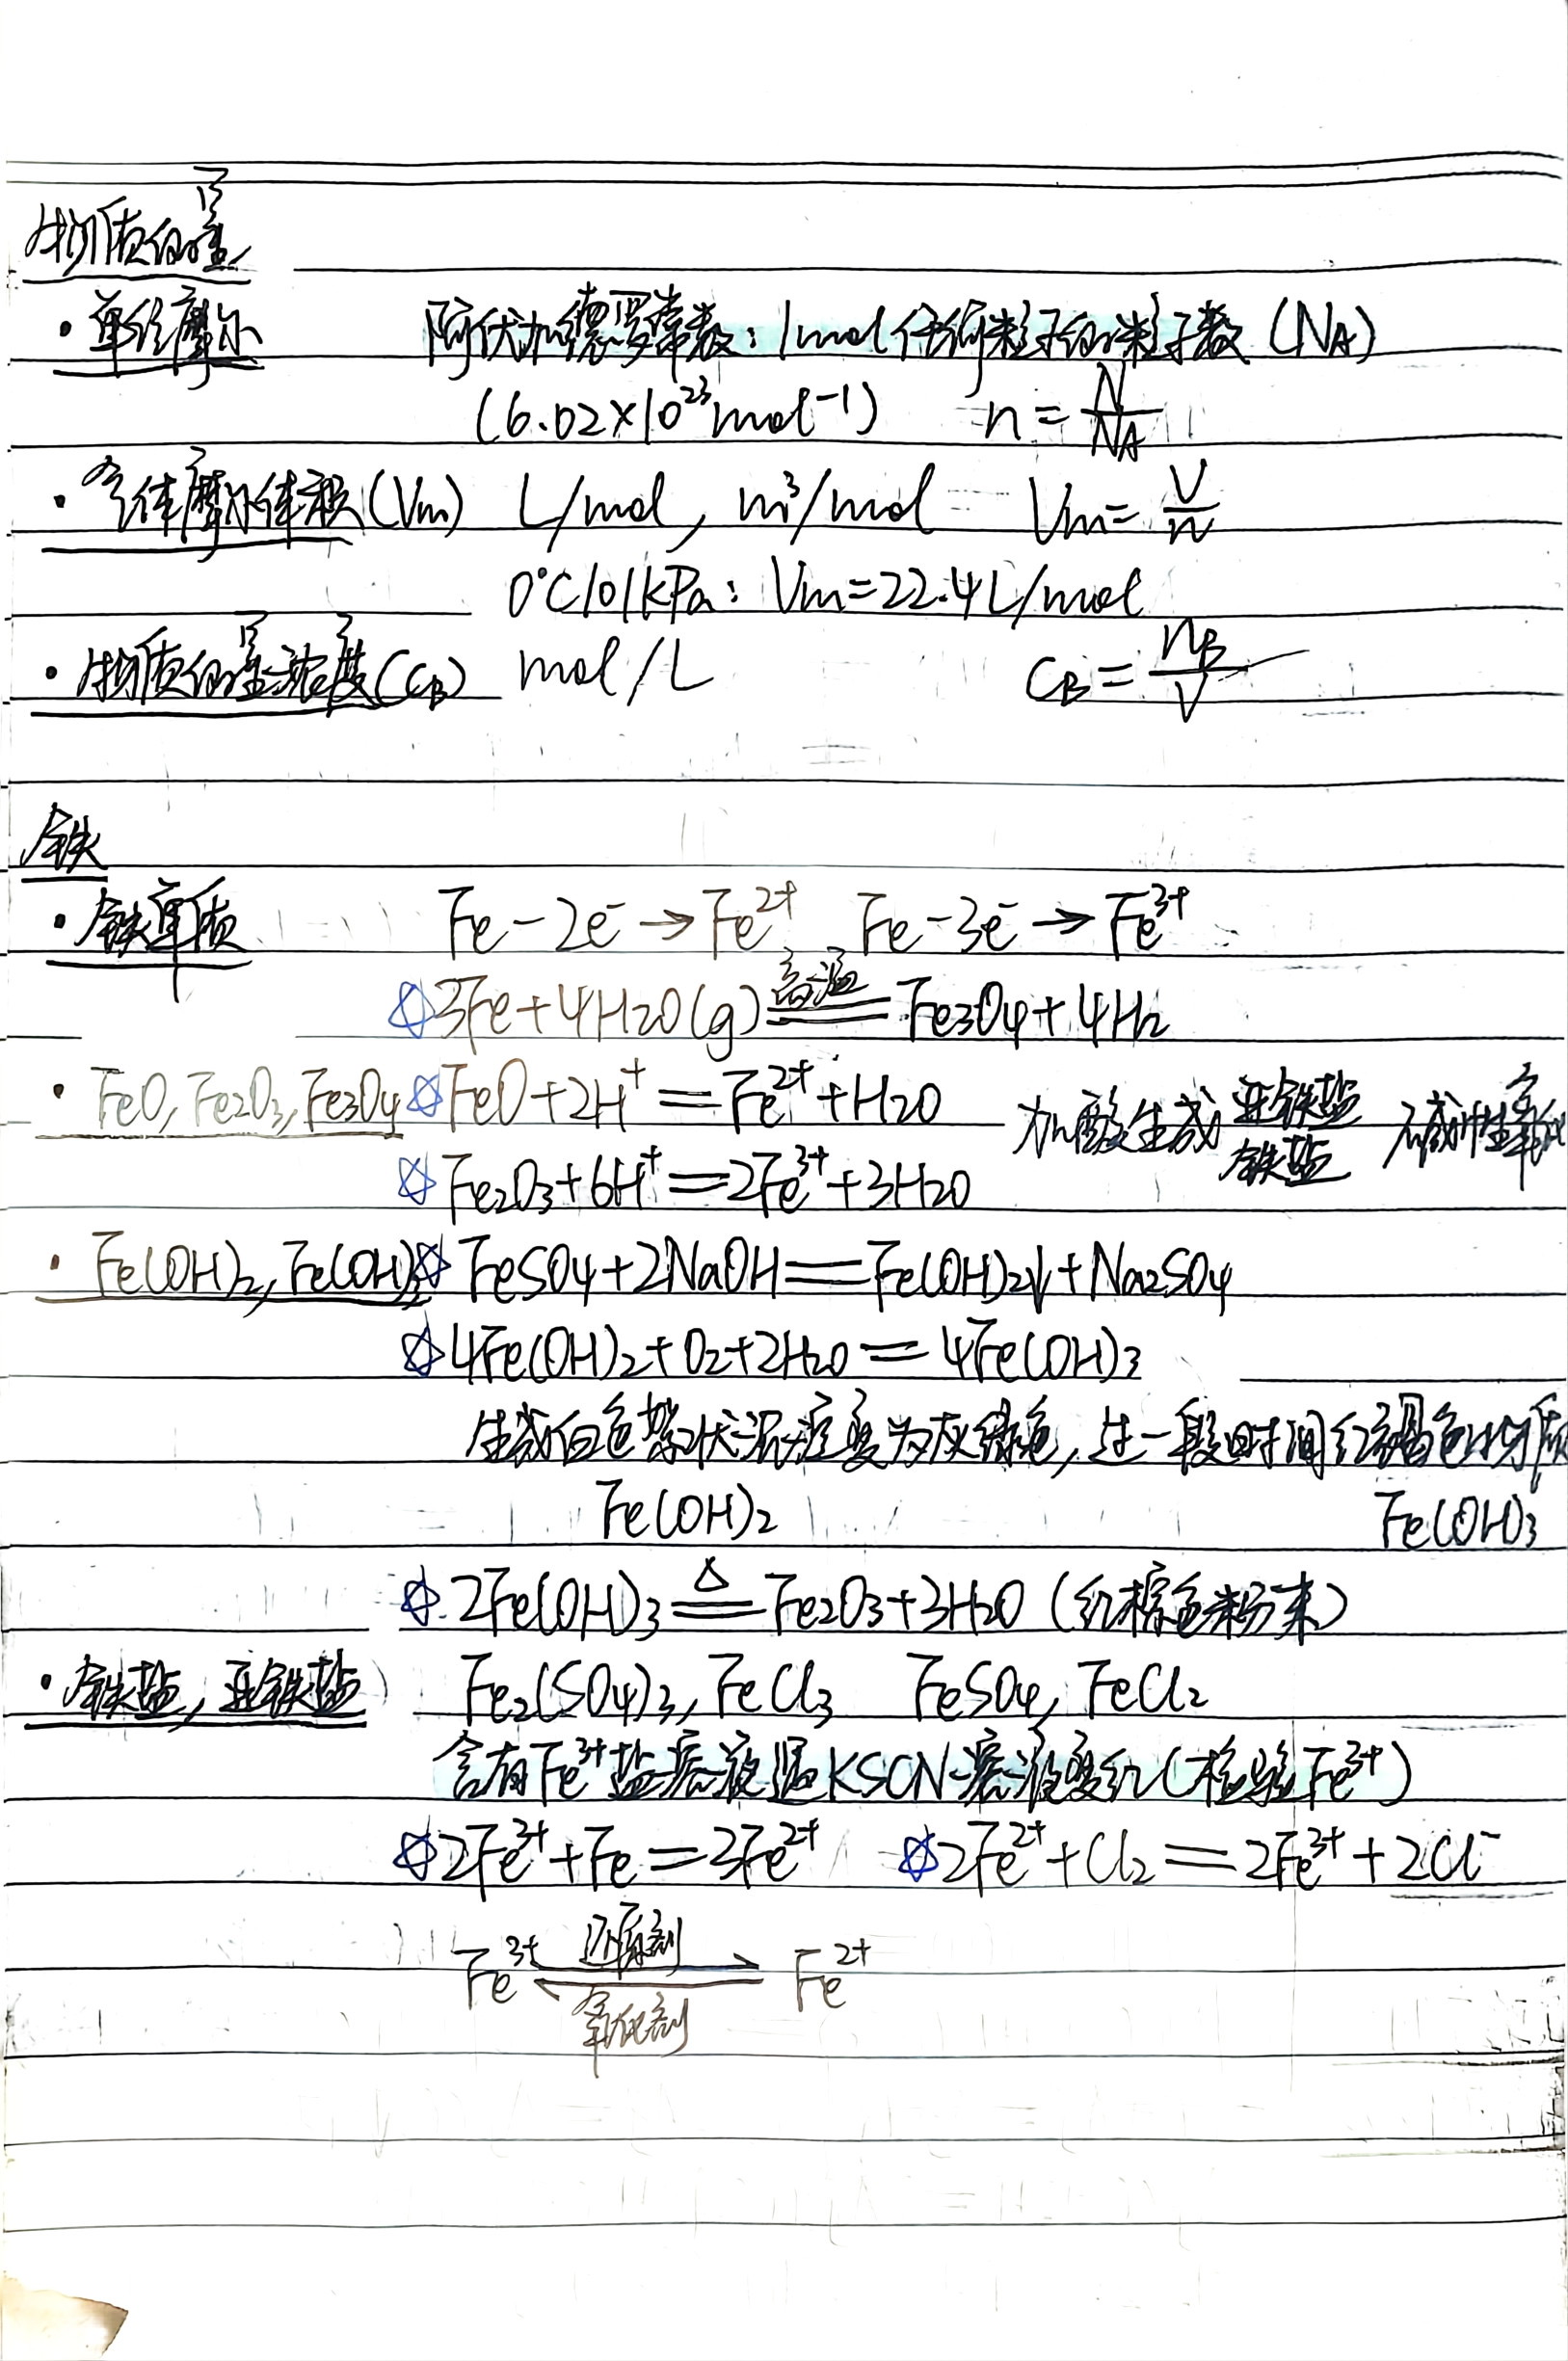 物质的量
·单位摩尔 阿伏加德罗常数:1mol任何粒子的粒子数(NA)
(6.02×10²³mol⁻¹) n=N/NA
·气体摩尔体积(Vm) L/mol, m³/mol Vm=V/n
0°C101kPa: Vm=22.4L/mol
·物质的量浓度(CB) mol/L CB=nB/V
铁
·铁单质 Fe-2e⁻→Fe²⁺ Fe-3e⁻→Fe³⁺
☆3Fe+4H₂O(g) 高温== Fe₃O₄+4H₂
·FeO, Fe₂O₃, Fe₃O₄ ☆FeO+2H⁺==Fe²⁺+H₂O 加酸生成 亚铁盐 铁盐 碱性氧化
☆Fe₂O₃+6H⁺==2Fe³⁺+3H₂O
·Fe(OH)₂, Fe(OH)₃ ☆FeSO₄+2NaOH==Fe(OH)₂↓+Na₂SO₄
☆4Fe(OH)₂+O₂+2H₂O==4Fe(OH)₃
生成白色絮状沉淀变为灰绿色, 过一段时间红褐色物质
Fe(OH)₂ Fe(OH)₃
☆2Fe(OH)₃ △== Fe₂O₃+3H₂O (红棕色粉末)
·铁盐, 亚铁盐 Fe₂(SO₄)₃, FeCl₃ FeSO₄, FeCl₂
含有Fe³⁺盐溶液遇KSCN溶液变红(检验Fe³⁺)
☆2Fe³⁺+Fe==3Fe²⁺ ☆2Fe²⁺+Cl₂==2Fe³⁺+2Cl⁻
还原剂
Fe³⁺ ⇌ Fe²⁺
氧化剂